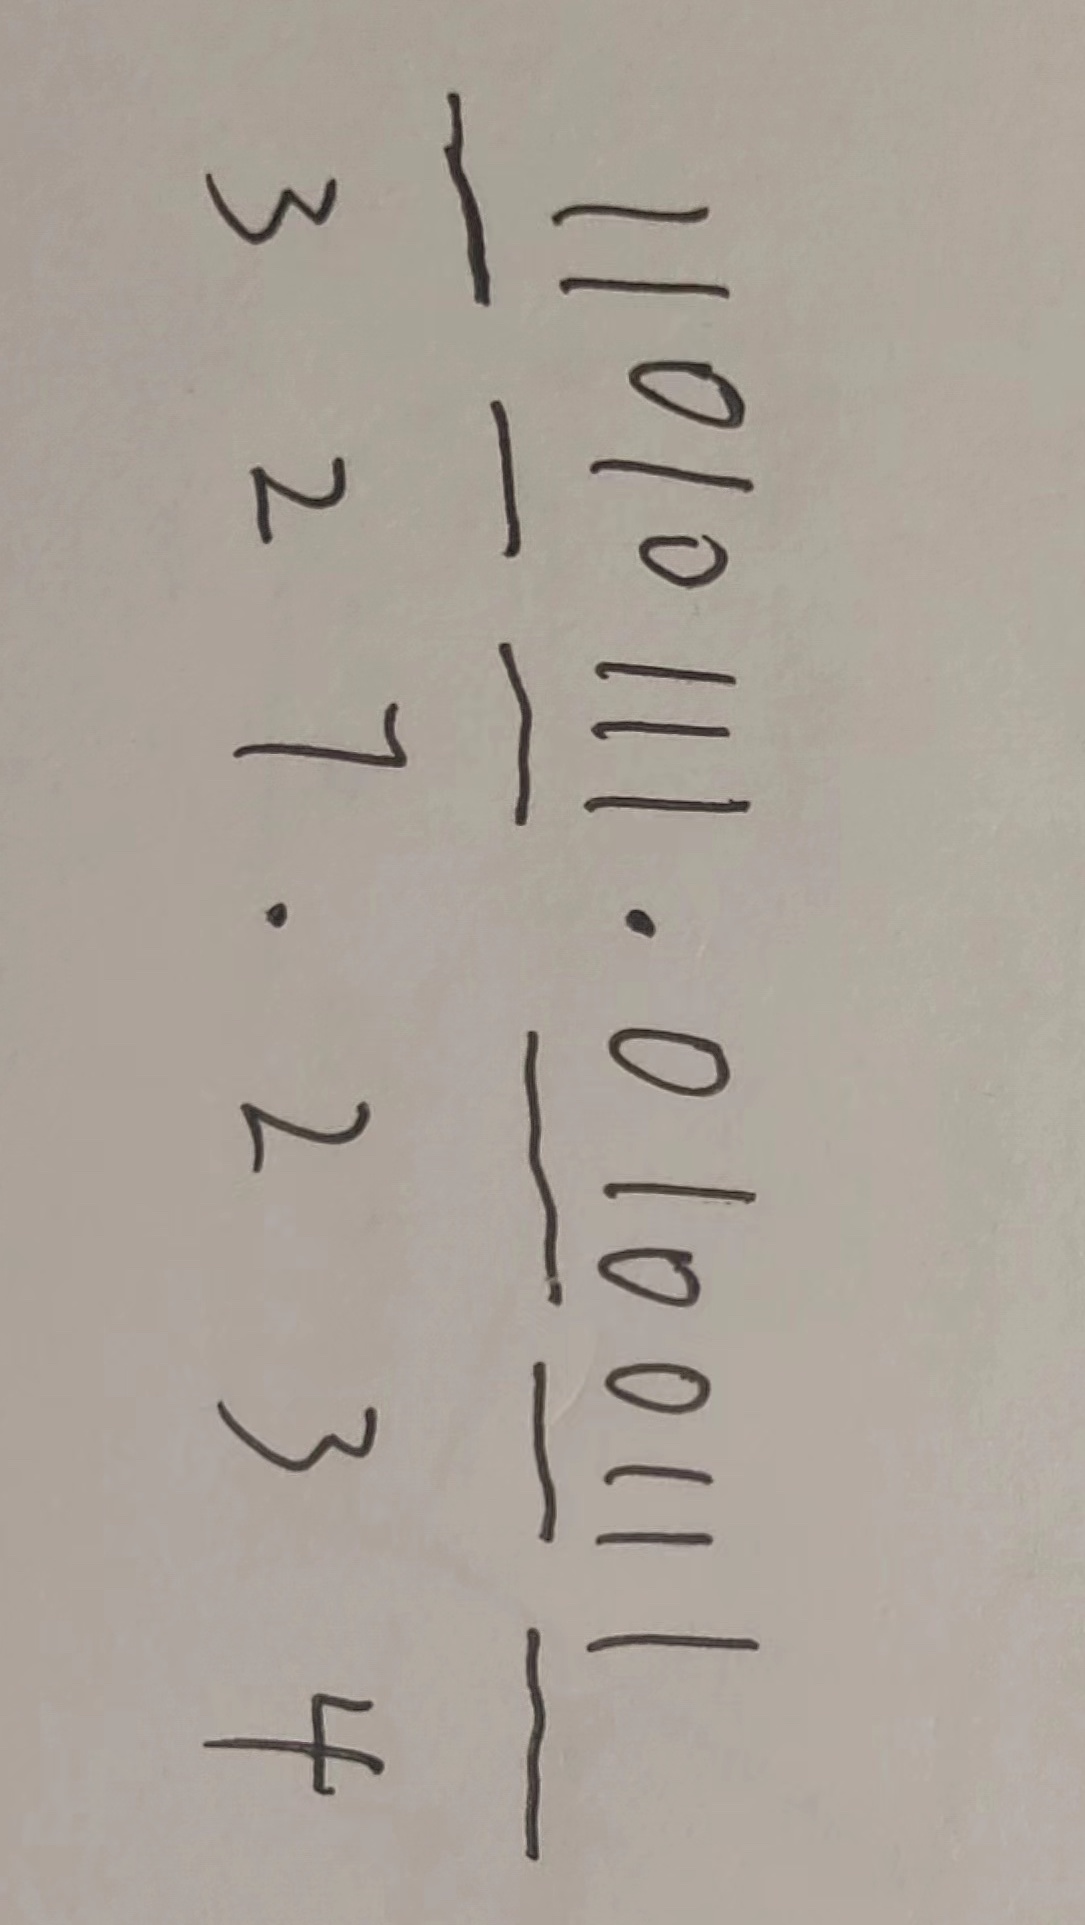 11010111.0100111
327.234